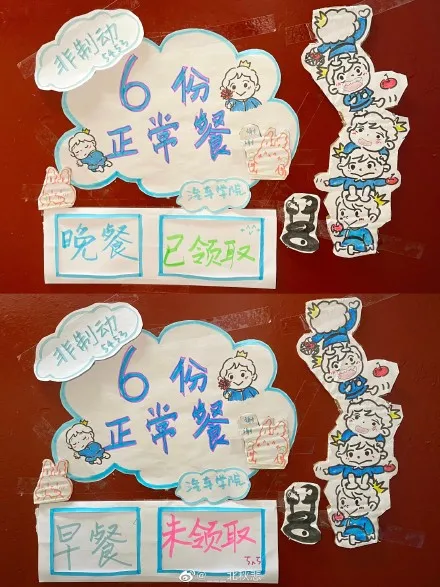 非制动
5453
6份
正常餐
汽车学院
晚餐
已领取
非制动
5453
6份
正常餐
汽车学院
早餐
未领取